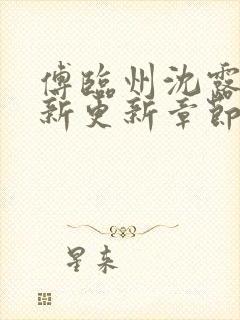 傅临州沈露
新更新章节
星来